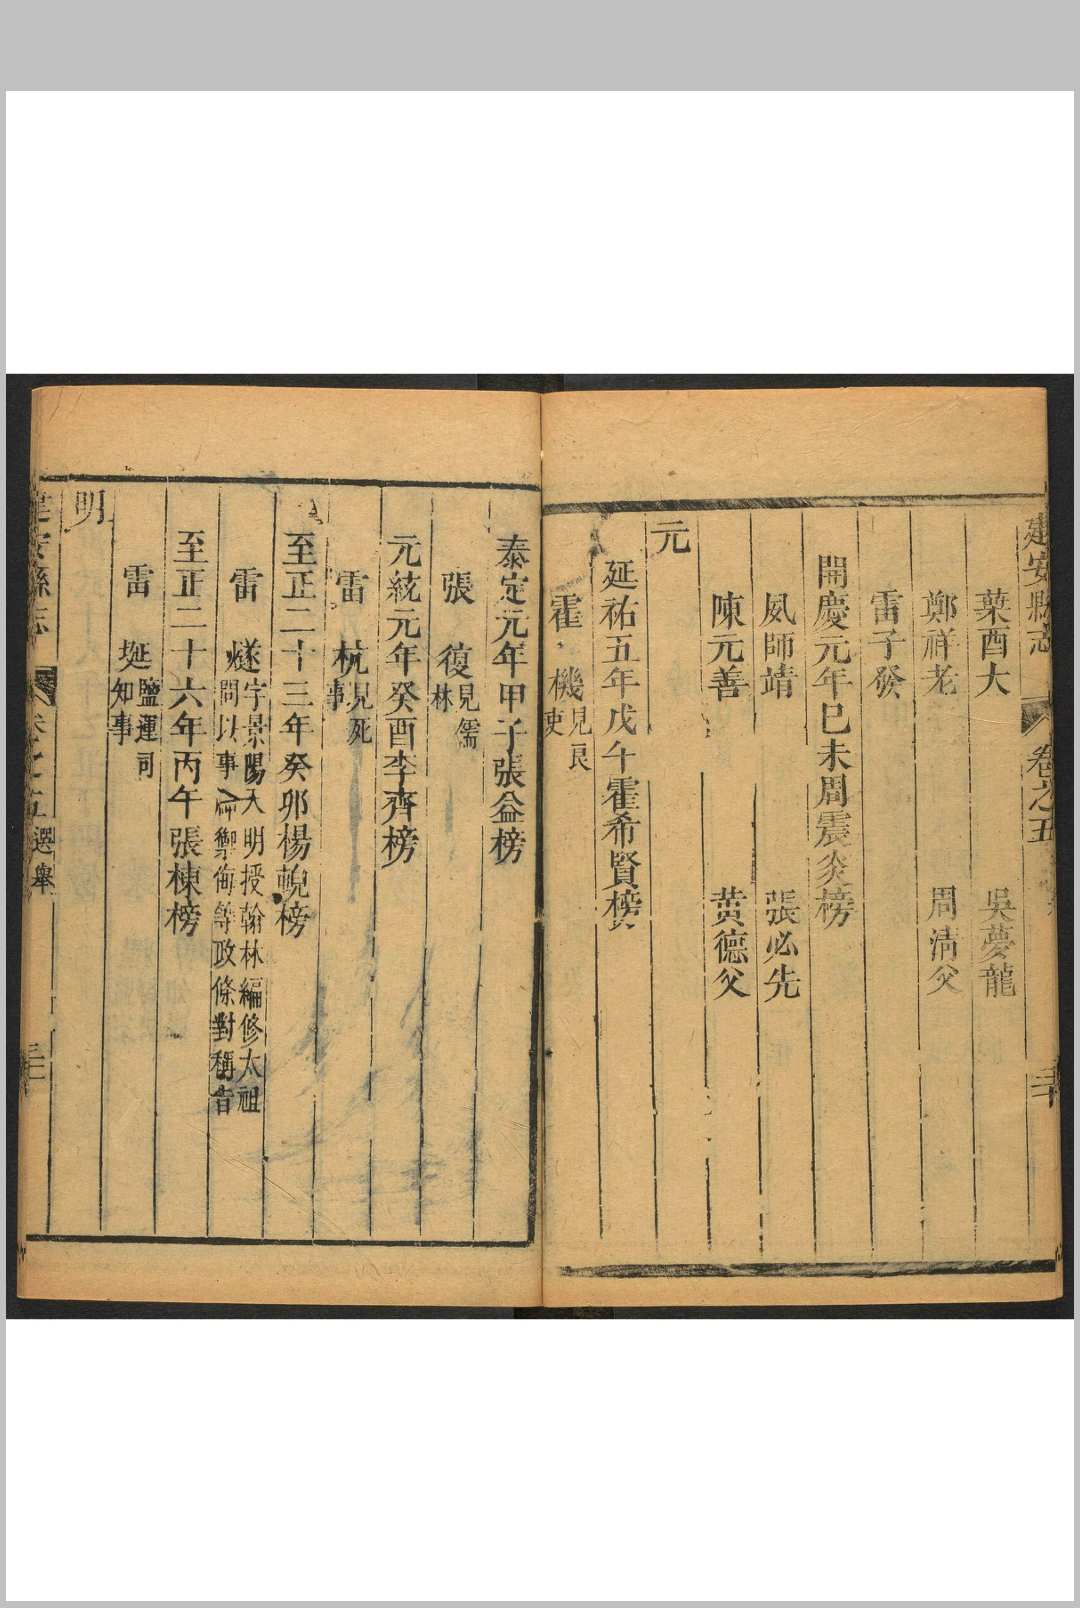 建安縣志 卷之五 三十
葉酉大 吳夢龍
鄭祥老 周淸父
雷子發
開慶元年巳未周震炎榜
威師靖 張必先
陳元善 黃德父
元
延祐五年戊午霍希賢榜
霍機見良吏
泰定元年甲子張益榜
張復見儒林
元統元年癸酉李齊榜
雷杭見死事
至正二十三年癸卯楊輗榜
雷燧字景陽入明授翰林編修太祖問以事命禦侮等政條對稱旨
至正二十六年丙午張棟榜
雷埏鹽運司知事
明
建安縣志 卷之五選舉